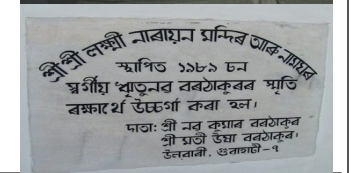 শ্ৰী শ্ৰী লক্ষ্মী নাৰায়ন মন্দিৰ আৰু নামঘৰ
স্থাপিত ১৯৮৯ চন
স্বৰ্গীয় ঋতুনৰ বৰঠাকুৰৰ স্মৃতি
ৰক্ষাৰ্থে উচৰ্গা কৰা হল।
দাতা: শ্ৰী নৱ কুমাৰ বৰঠাকুৰ
শ্ৰী মতী উষা বৰঠাকুৰ।
উলুবাৰী, গুৱাহাটী-৭